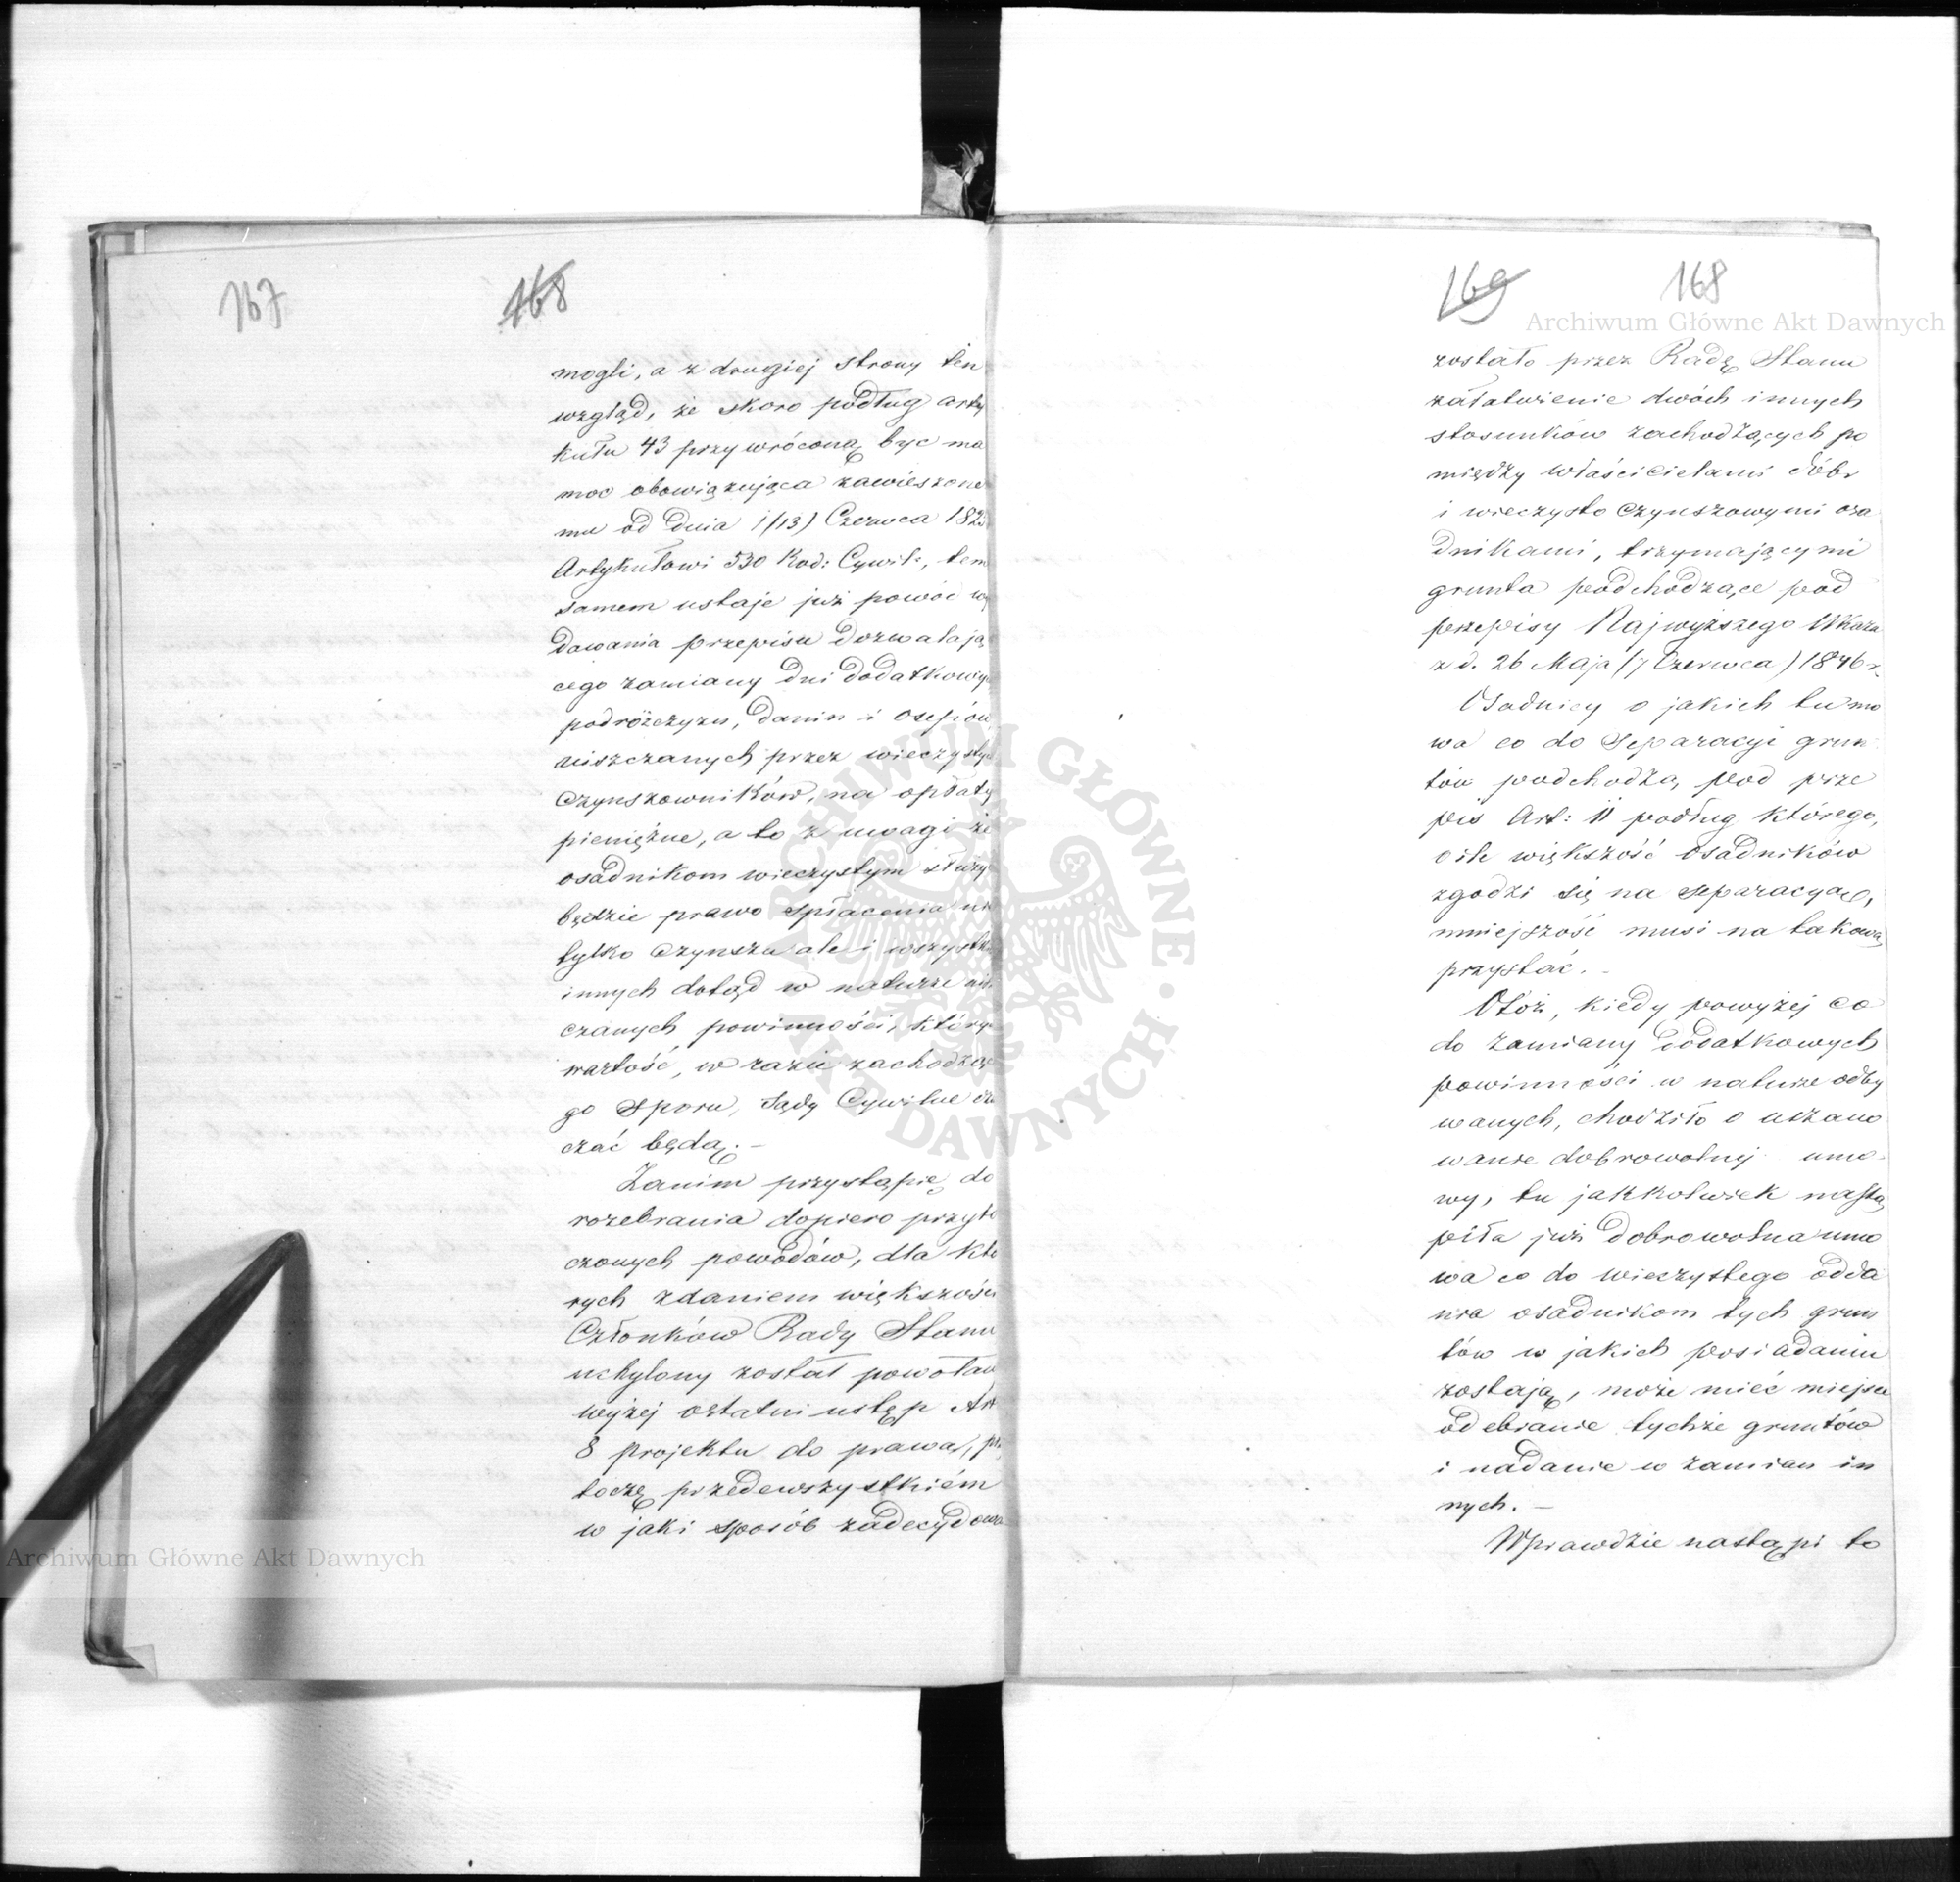 167
168
mogli, a z drugiej strony ten
wzgląd, że skoro podług arty
kułu 43 przywróconą być ma
moc obowiązująca zawieszone
mu od dnia 1/13) Czerwca 182
Artykułowi 530 Kod: Cywil:, tem
samem ustaje już powód wy
dawania przepisu dozwalają
cego zamiany dni dodatkowy
podróżczyzn, danin i osepów
uiszczanych przez wieczysty
czynszowników, na opłaty
pieniężne, a to z uwagi że
osadnikom wieczystym służy
będzie prawo spłacenia nie
tylko czynszu ale i wszystki
innych dotąd w naturze uisz
czanych powinności, który
wartość, w razie zachodzą
go sporu, Sądy Cywilne ozn
czać będą. –
Zanim przystąpię do
rozebrania dopiero przyto
czonych powodów, dla któ
rych zdaniem większości
Członków Rady Stanu
uchylony został powołan
wyżej ostatni ustęp Art
8 projektu do prawa, prz
toczę przedewszystkiém
w jaki sposób zadecydowa
169
168
Archiwum Główne Akt Dawnych
zostało przez Radę Stanu
załatwienie dwóch innych
stosunków zachodzących po
między właścicielami dóbr
i wieczysto czynszowymi osa
dnikami, trzymającymi
grunta podchodzące pod
przepisy Najwyższego Ukazu
z d. 26 Maja (7 Czerwca) 1846 r.
Osadnicy o jakich tu mo
wa co do separacyi grun
tów podchodzą pod prze
pis Art: 11 podług którego,
o ile większość osadników
zgodzi się na separacyą,
mniejszość musi na takową
przystać. –
Otóż, kiedy powyżej co
do zamiany dodatkowych
powinności w naturze odby
wanych, chodziło o uszano
wanie dobrowolnej umo
wy, tu jakkolwiek nastą
piła już dobrowolna umo
wa co do wieczystego odda
nia osadnikom tych grun
tów w jakich posiadaniu
zostają, może mieć miejsce
odebranie tychże gruntów
i nadanie w zamian in
nych. –
Wprawdzie nastąpi to
ARCHIWUM GŁÓWNE AKT DAWNYCH
Archiwum Główne Akt Dawnych